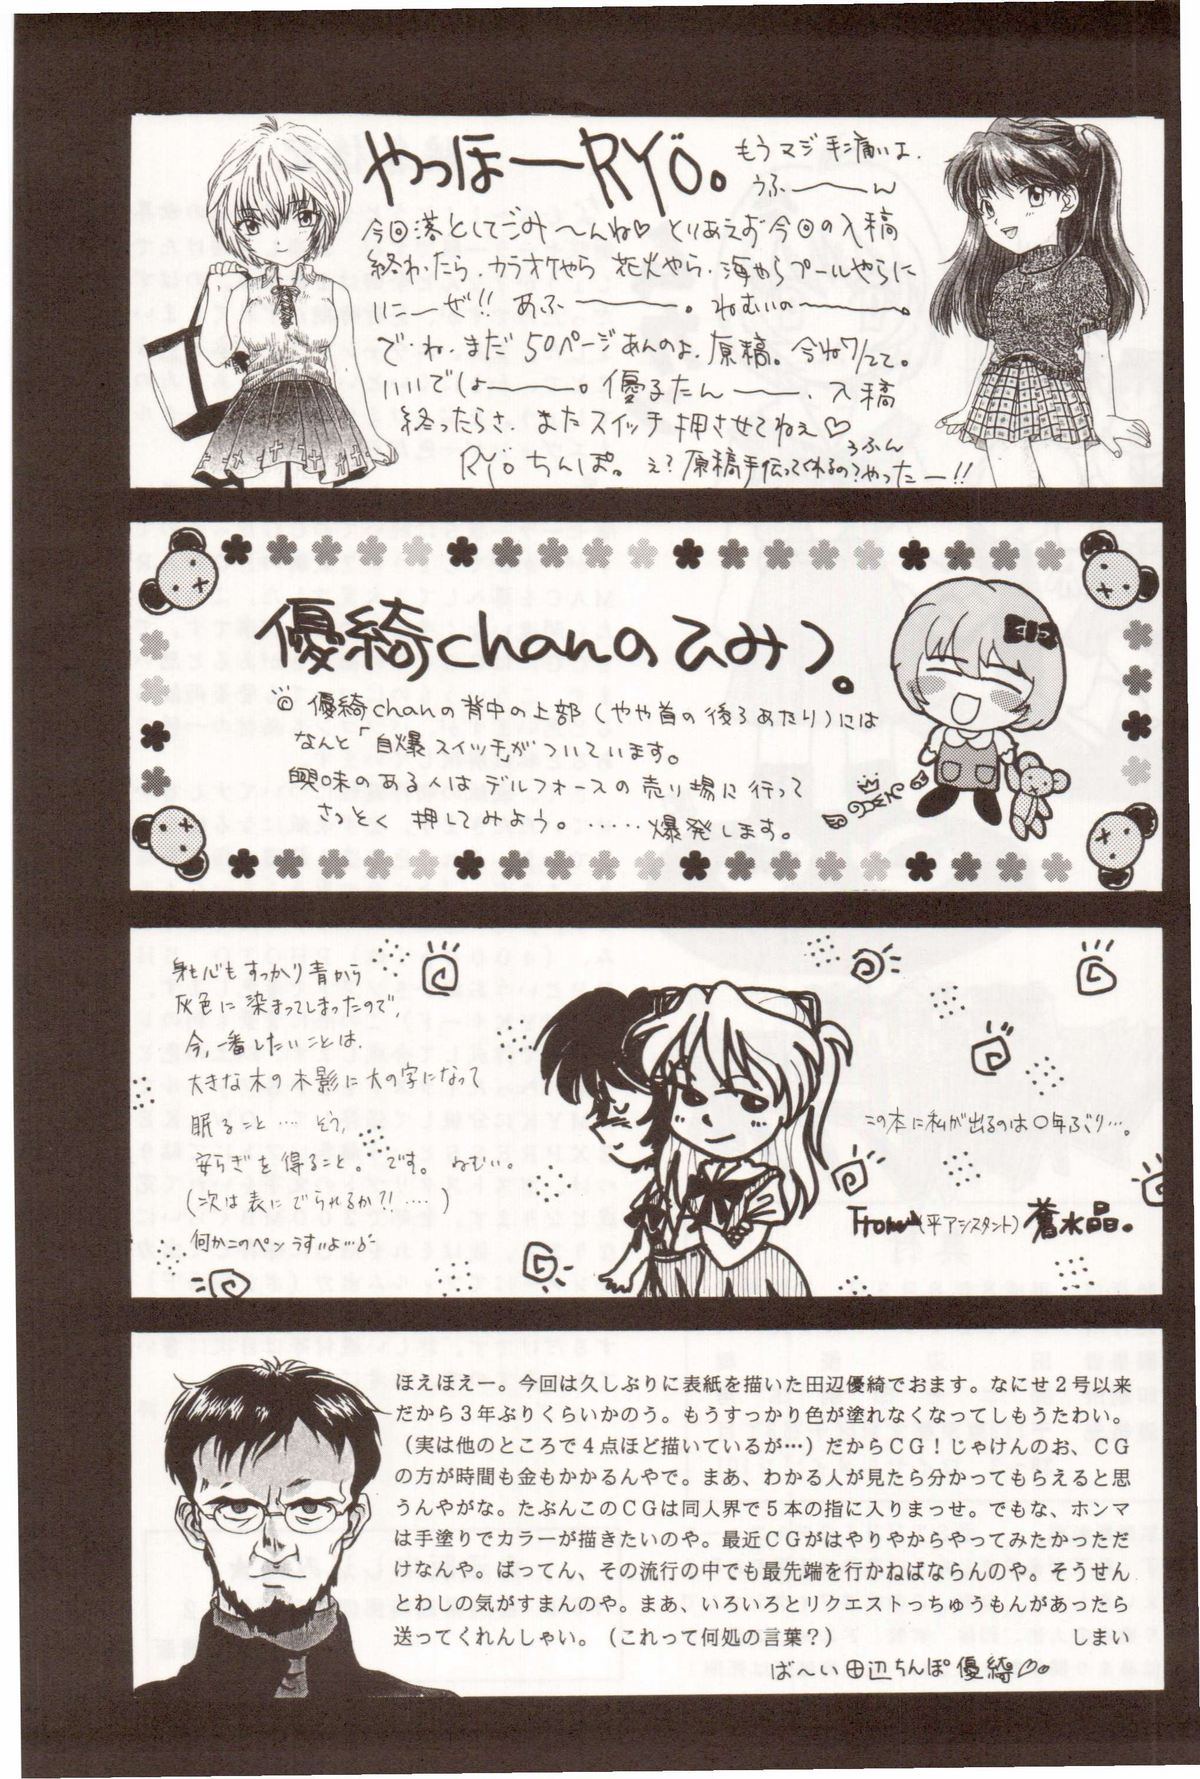 やっほーRYÖ。
もうマジ手痛いよ.
うふーーん
今回落としてごみ〜んね♡ とりあえず今回の入稿
終わったら、カラオケやら 花火やら、海やらプールやらに
いこーぜ!! あふーー。ねむいのーー。
で、ね、まだ50ページあんのよ、原稿。今ね7/22。
いいでしょーー。優るたんーー、入稿
終ったらさ、またスイッチ押させてねぇ♡ うふん
RYÖちんぽ。え?原稿手伝ってくれるの?やったー!!
優綺chanのひみつ。
◎優綺chanの背中の上部(やや首の後ろあたり)には
なんと「自爆スイッチ」がついています。
興味のある人はデルフォースの売り場に行って
さっそく 押してみよう。……爆発します。
身も心もすっかり青から
灰色に染まってしまったので、
今、一番したいことは、
大きな木の木影に大の字になって
眠ること… そう、
安らぎを得ること。です。ねむい。
(次は表にでられるか?!‥‥)
何かこのペンうすいよ…
この本に私が出るのは〇年ぶり…。
From(平アシスタント)蒼水晶。
ほえほえー。今回は久しぶりに表紙を描いた田辺優綺でおます。なにせ2号以来
だから3年ぶりくらいかのう。もうすっかり色が塗れなくなってしもうたわい。
(実は他のところで4点ほど描いているが…)だからCG!じゃけんのお、CG
の方が時間も金もかかるんやで。まあ、わかる人が見たら分かってもらえると思
うんやがな。たぶんこのCGは同人界で5本の指に入りまっせ。でもな、ホンマ
は手塗りでカラーが描きたいのや。最近CGがはやりやからやってみたかっただ
けなんや。ばってん、その流行の中でも最先端を行かねばならんのや。そうせん
とわしの気がすまんのや。まあ、いろいろとリクエストっちゅうもんがあったら
送ってくれんしゃい。(これって何処の言葉?) しまい
ば〜い 田辺ちんぽ優綺♡。